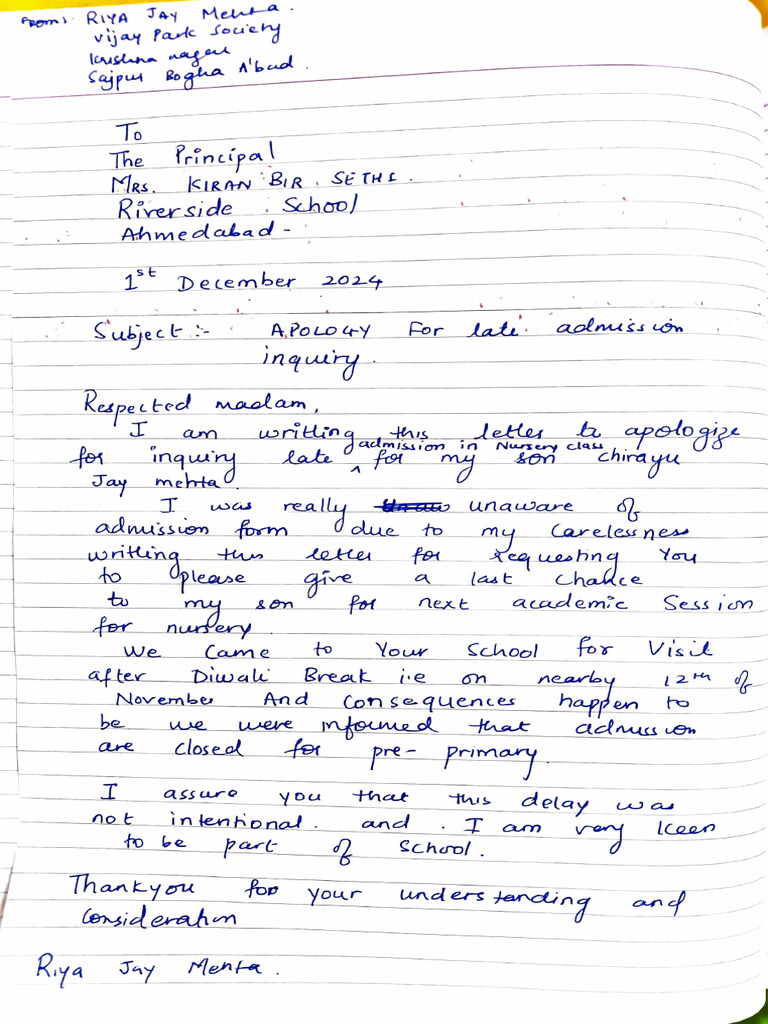 From: RIYA JAY Mehta.
Vijay Park Society
Krishna nagar
Sajpur Bogha A'bad.
To
The Principal
MRS. KIRAN BIR SETHI.
Riverside School
Ahmedabad-
1st December 2024
Subject:- APOLOGY For late admission
inquiry.
Respected madam,
I am writting this letter to apologize
admission in Nursery class
for inquiry late ^ for my son chirayu
Jay mehta.
I was really unaware of
admission form due to my carelessness
writting this letter for requesting You
to please give a last chance
to my son for next academic Session
for nursery.
We came to Your School for Visit
after Diwali Break i.e on nearby 12th of
November And consequences happen to
be we were informed that admission
are closed for pre-primary.
I assure you that this delay was
not intentional. and . I am very keen
to be part of School.
Thankyou for your understanding and
consideration
Riya Jay Mehta.